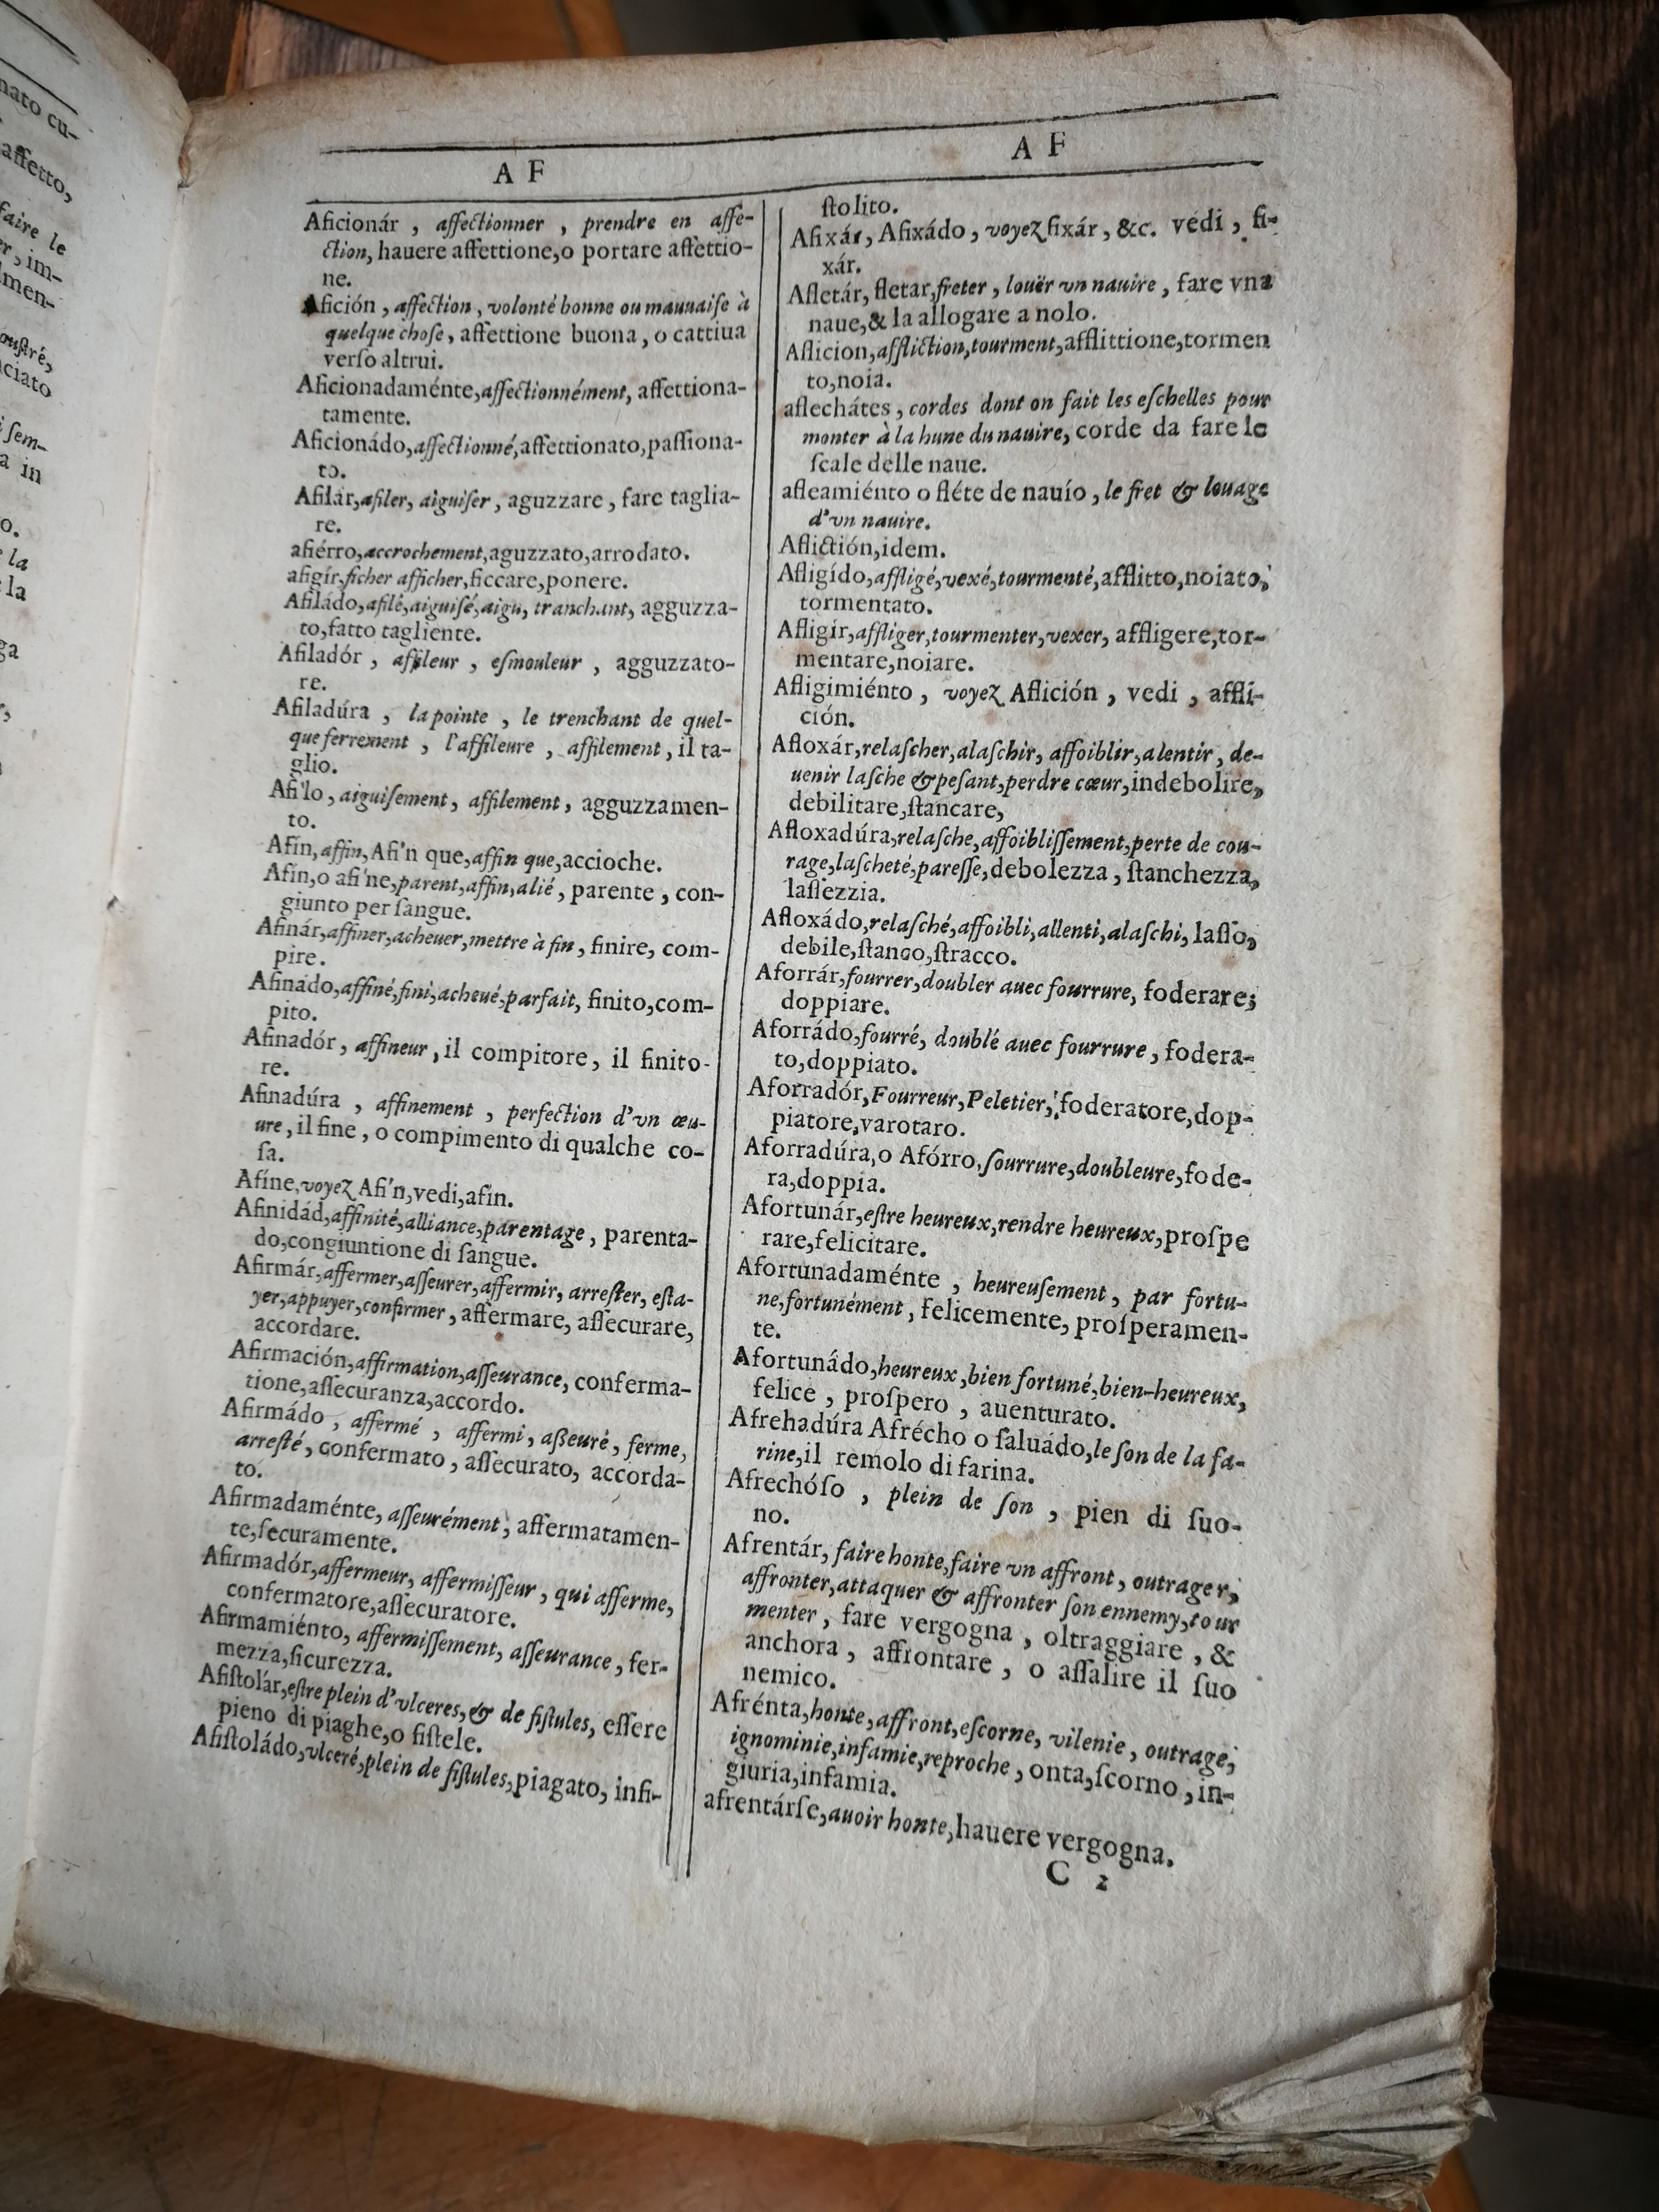 nato cu-
affetto,
faire le
er, im-
lmen-
ouſtré,
ciato
i ſem-
a in
o.
la
la
ga
A F
Aficionár , affectionner , prendre en affe-
ction, hauere affettione,o portare affettio-
ne.
Afición , affection , volonté bonne ou mauuaiſe à
quelque choſe, affettione buona , o cattiua
verſo altrui.
Aficionadaménte,affectionnément, affettiona-
tamente.
Aficionádo,affectionné,affettionato,paſſiona-
to.
Afilár,afiler, aiguiſer , aguzzare , fare taglia-
re.
afiérro,accrochement,aguzzato,arrodato.
afigír,ficher afficher,ficcare,ponere.
Afiládo,afilé,aiguiſé,aigu, tranchant, agguzza-
to,fatto tagliente.
Afiladór , affileur , eſmouleur , agguzzato-
re.
Afiladúra , la pointe , le trenchant de quel-
que ferrement , l'affileure , affilement, il ta-
glio.
Afi'lo , aiguiſement, affilement, agguzzamen-
to.
Afín,affin,Afi'n que,affin que,accioche.
Afín,o afi'ne,parent,affin,alié , parente , con-
giunto per ſangue.
Afinár,affiner,acheuer,mettre à fin , finire, com-
pire.
Afinádo,affiné,fini,acheué,parfait, finito,com-
pito.
Afinadór, affineur, il compitore, il finito-
re.
Afinadúra , affinement , perfection d'vn œu-
ure, il fine , o compimento di qualche co-
ſa.
Afíne,voyez Afi'n,vedi,afín.
Afinidád,affinité,alliance,parentage , parenta-
do,congiuntione di ſangue.
Afirmár,affermer,aſſeurer,affermir, arreſter, eſta-
yer,appuyer,confirmer, affermare, aſſecurare,
accordare.
Afirmación,affirmation,aſſeurance, conferma-
tione,aſſecuranza,accordo.
Afirmádo , affermé , affermi, aßeuré, ferme,
arreſté, confermato , aſſecurato, accorda-
to.
Afirmadaménte, aſſeurément, affermatamen-
te,ſecuramente.
Afirmadór,affermeur, affermiſſeur , qui afferme,
confermatore,aſſecuratore.
Afirmamiénto, affermiſſement, aſſeurance, fer-
mezza,ſicurezza.
Afiſtolár,eſtre plein d'vlceres,& de fiſtules, eſſere
pieno di piaghe,o fiſtele.
Afiſtoládo,vlceré,plein de fiſtules,piagato, infi-
A F
ſtolito.
Afixár, Afixádo , voyez fixár , &c. vedi , fi-
xár.
Afletár, fletar,freter , louër vn nauire , fare vna
naue,& la allogare a nolo.
Aflicion,affliction,tourment,afflittione,tormen
to,noia.
aflechátes , cordes dont on fait les eſchelles pour
monter à la hune du nauire, corde da fare le
ſcale delle naue.
afleamiénto o fléte de nauío , le fret & louage
d'vn nauire.
Aflictión,idem.
Afligído,affligé,vexé,tourmenté,afflitto,noiato,
tormentato.
Afligír,affliger,tourmenter,vexer, affligere,tor-
mentare,noiare.
Afligimiénto , voyez Aflición , vedi , affli-
ción.
Afloxár,relaſcher,alaſchir, affoiblir,alentir, de-
uenir laſche & peſant,perdre cœur,indebolire,
debilitare,ſtancare,
Afloxadúra,relaſche,affoibliſſement,perte de cou-
rage,laſcheté,pareſſe,debolezza , ſtanchezza,
laſſezzia.
Afloxádo,relaſché,affoibli,allenti,alaſchi, laſſo,
debile,ſtanco,ſtracco.
Aforrár,fourrer,doubler auec fourrure, foderare;
doppiare.
Aforrádo,fourré, doublé auec fourrure , fodera-
to,doppiato.
Aforradór,Fourreur,Peletier, foderatore,dop-
piatore,varotaro.
Aforradúra,o Afórro,fourrure,doubleure,fode-
ra,doppia.
Afortunár,eſtre heureux,rendre heureux,proſpe
rare,felicitare.
Afortunadaménte , heureuſement, par fortu-
ne,fortunément , felicemente, proſperamen-
te.
Afortunádo,heureux,bien fortuné,bien-heureux,
felice , proſpero , auenturato.
Afrehadúra Afrécho o ſaluádo,le ſon de la fa-
rine,il remolo di farina.
Afrechóſo , plein de ſon , pien di ſuo-
no.
Afrentár, faire honte,faire vn affront , outrager,
affronter,attaquer & affronter ſon ennemy,tour
menter , fare vergogna , oltraggiare , &
anchora , affrontare , o aſſalire il ſuo
nemico.
Afrénta,honte,affront,eſcorne, vilenie , outrage,
ignominie,infamie,reproche , onta,ſcorno , in-
giuria,infamia.
afrentárſe,auoir honte,hauere vergogna.
C 2